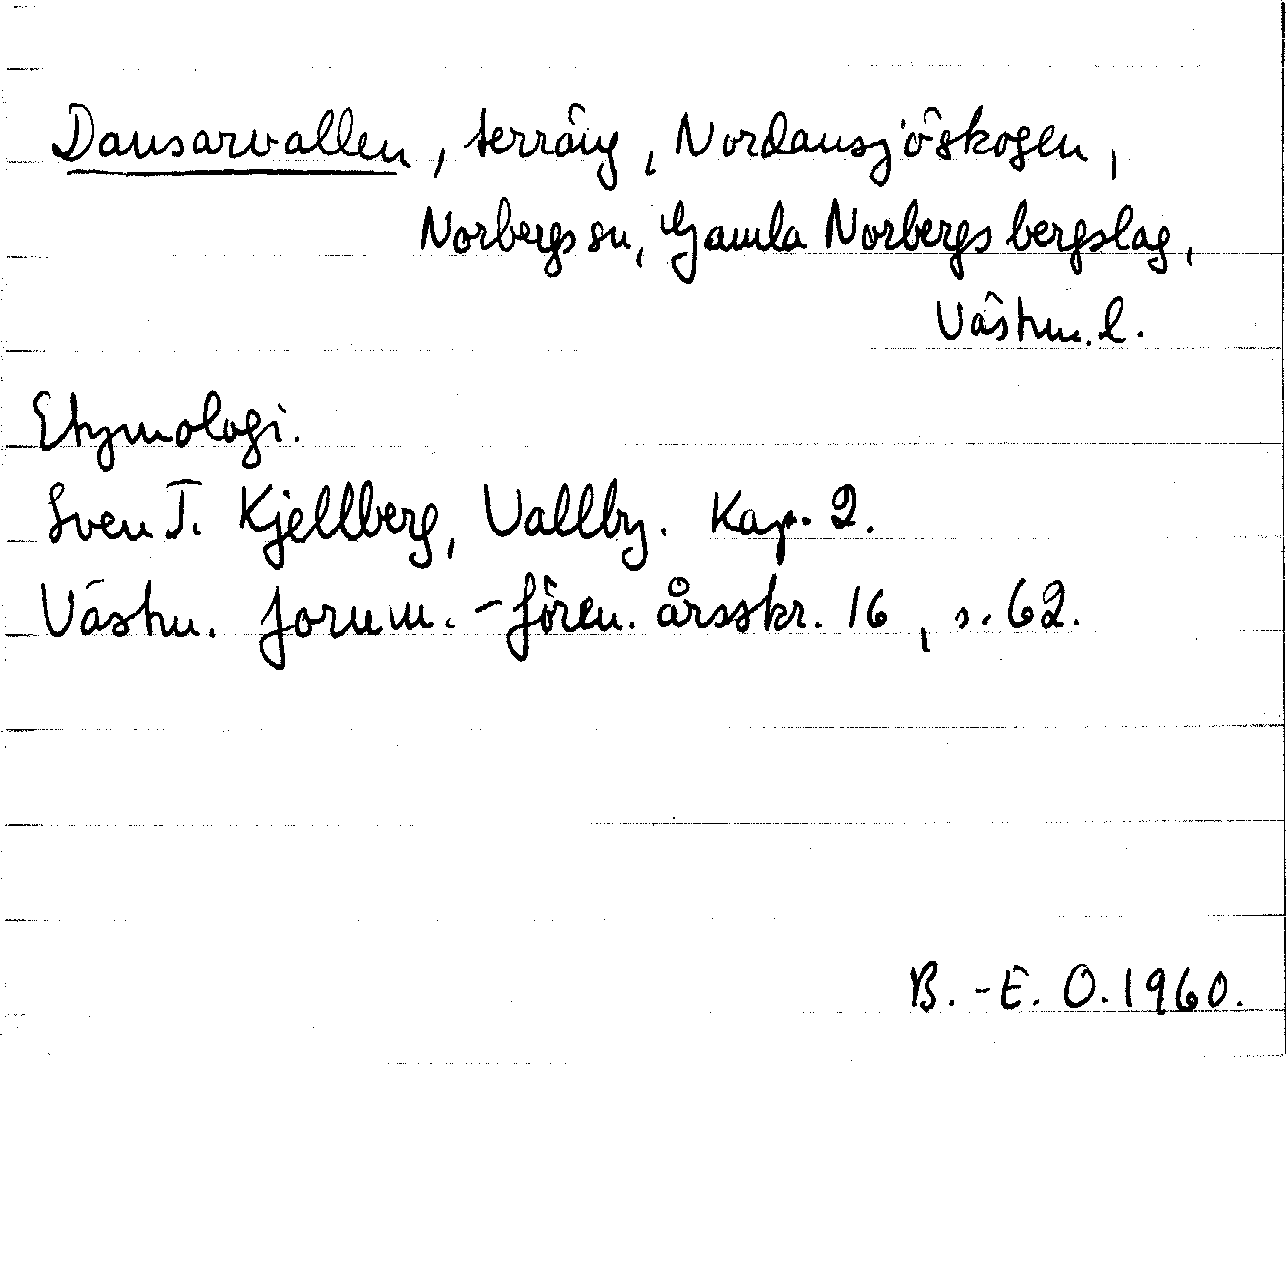 Dansarvallen, terräng, Nordansjöskogen,
Norbergs sn, Gamla Norbergs bergslag,
Västm. l.
Etymologi.
Sven T. Kjellberg, Vallby. Kap. 2.
Västm. fornm.-fören. årsskr. 16, s. 62.
B.-E. O. 1960.